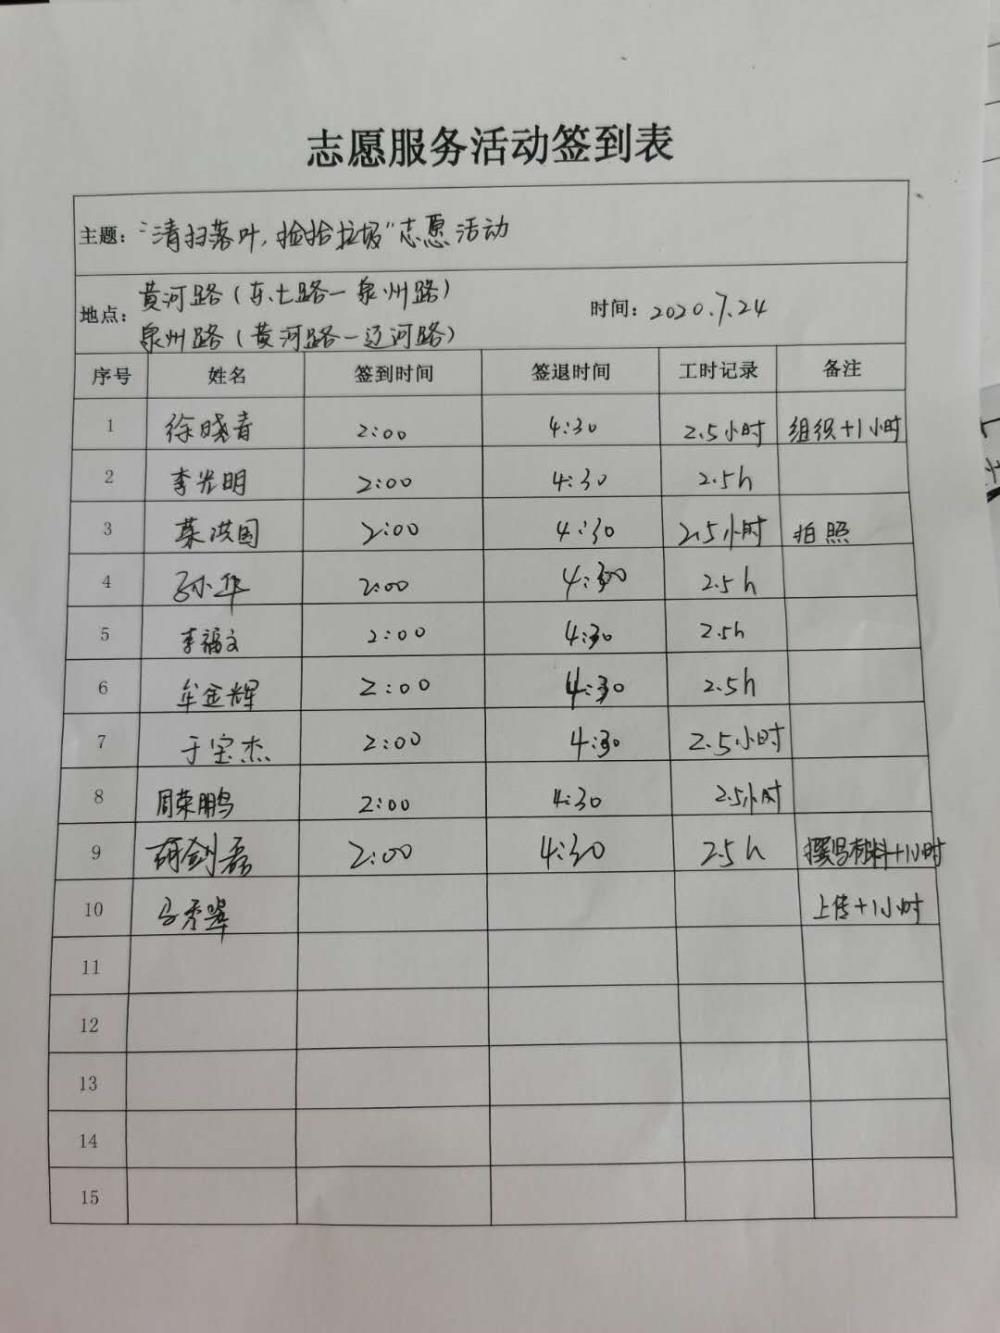 志愿服务活动签到表
主题：“清扫落叶，捡拾垃圾”志愿活动
地点：黄河路（东七路—泉州路）
泉州路（黄河路—辽河路）
时间：2020.7.24
序号 姓名 签到时间 签退时间 工时记录 备注
1 徐晓青 2:00 4:30 2.5小时 组织+1小时
2 李光明 2:00 4:30 2.5h
3 蔡洪国 2:00 4:30 2.5小时 拍照
4 孙华 2:00 4:30 2.5h
5 李福文 2:00 4:30 2.5h
6 牟金辉 2:00 4:30 2.5h
7 于宝杰 2:00 4:30 2.5小时
8 周荣鹏 2:00 4:30 2.5小时
9 胡剑磊 2:00 4:30 2.5h 撰写材料+1小时
10 马秀翠 上传+1小时
11
12
13
14
15